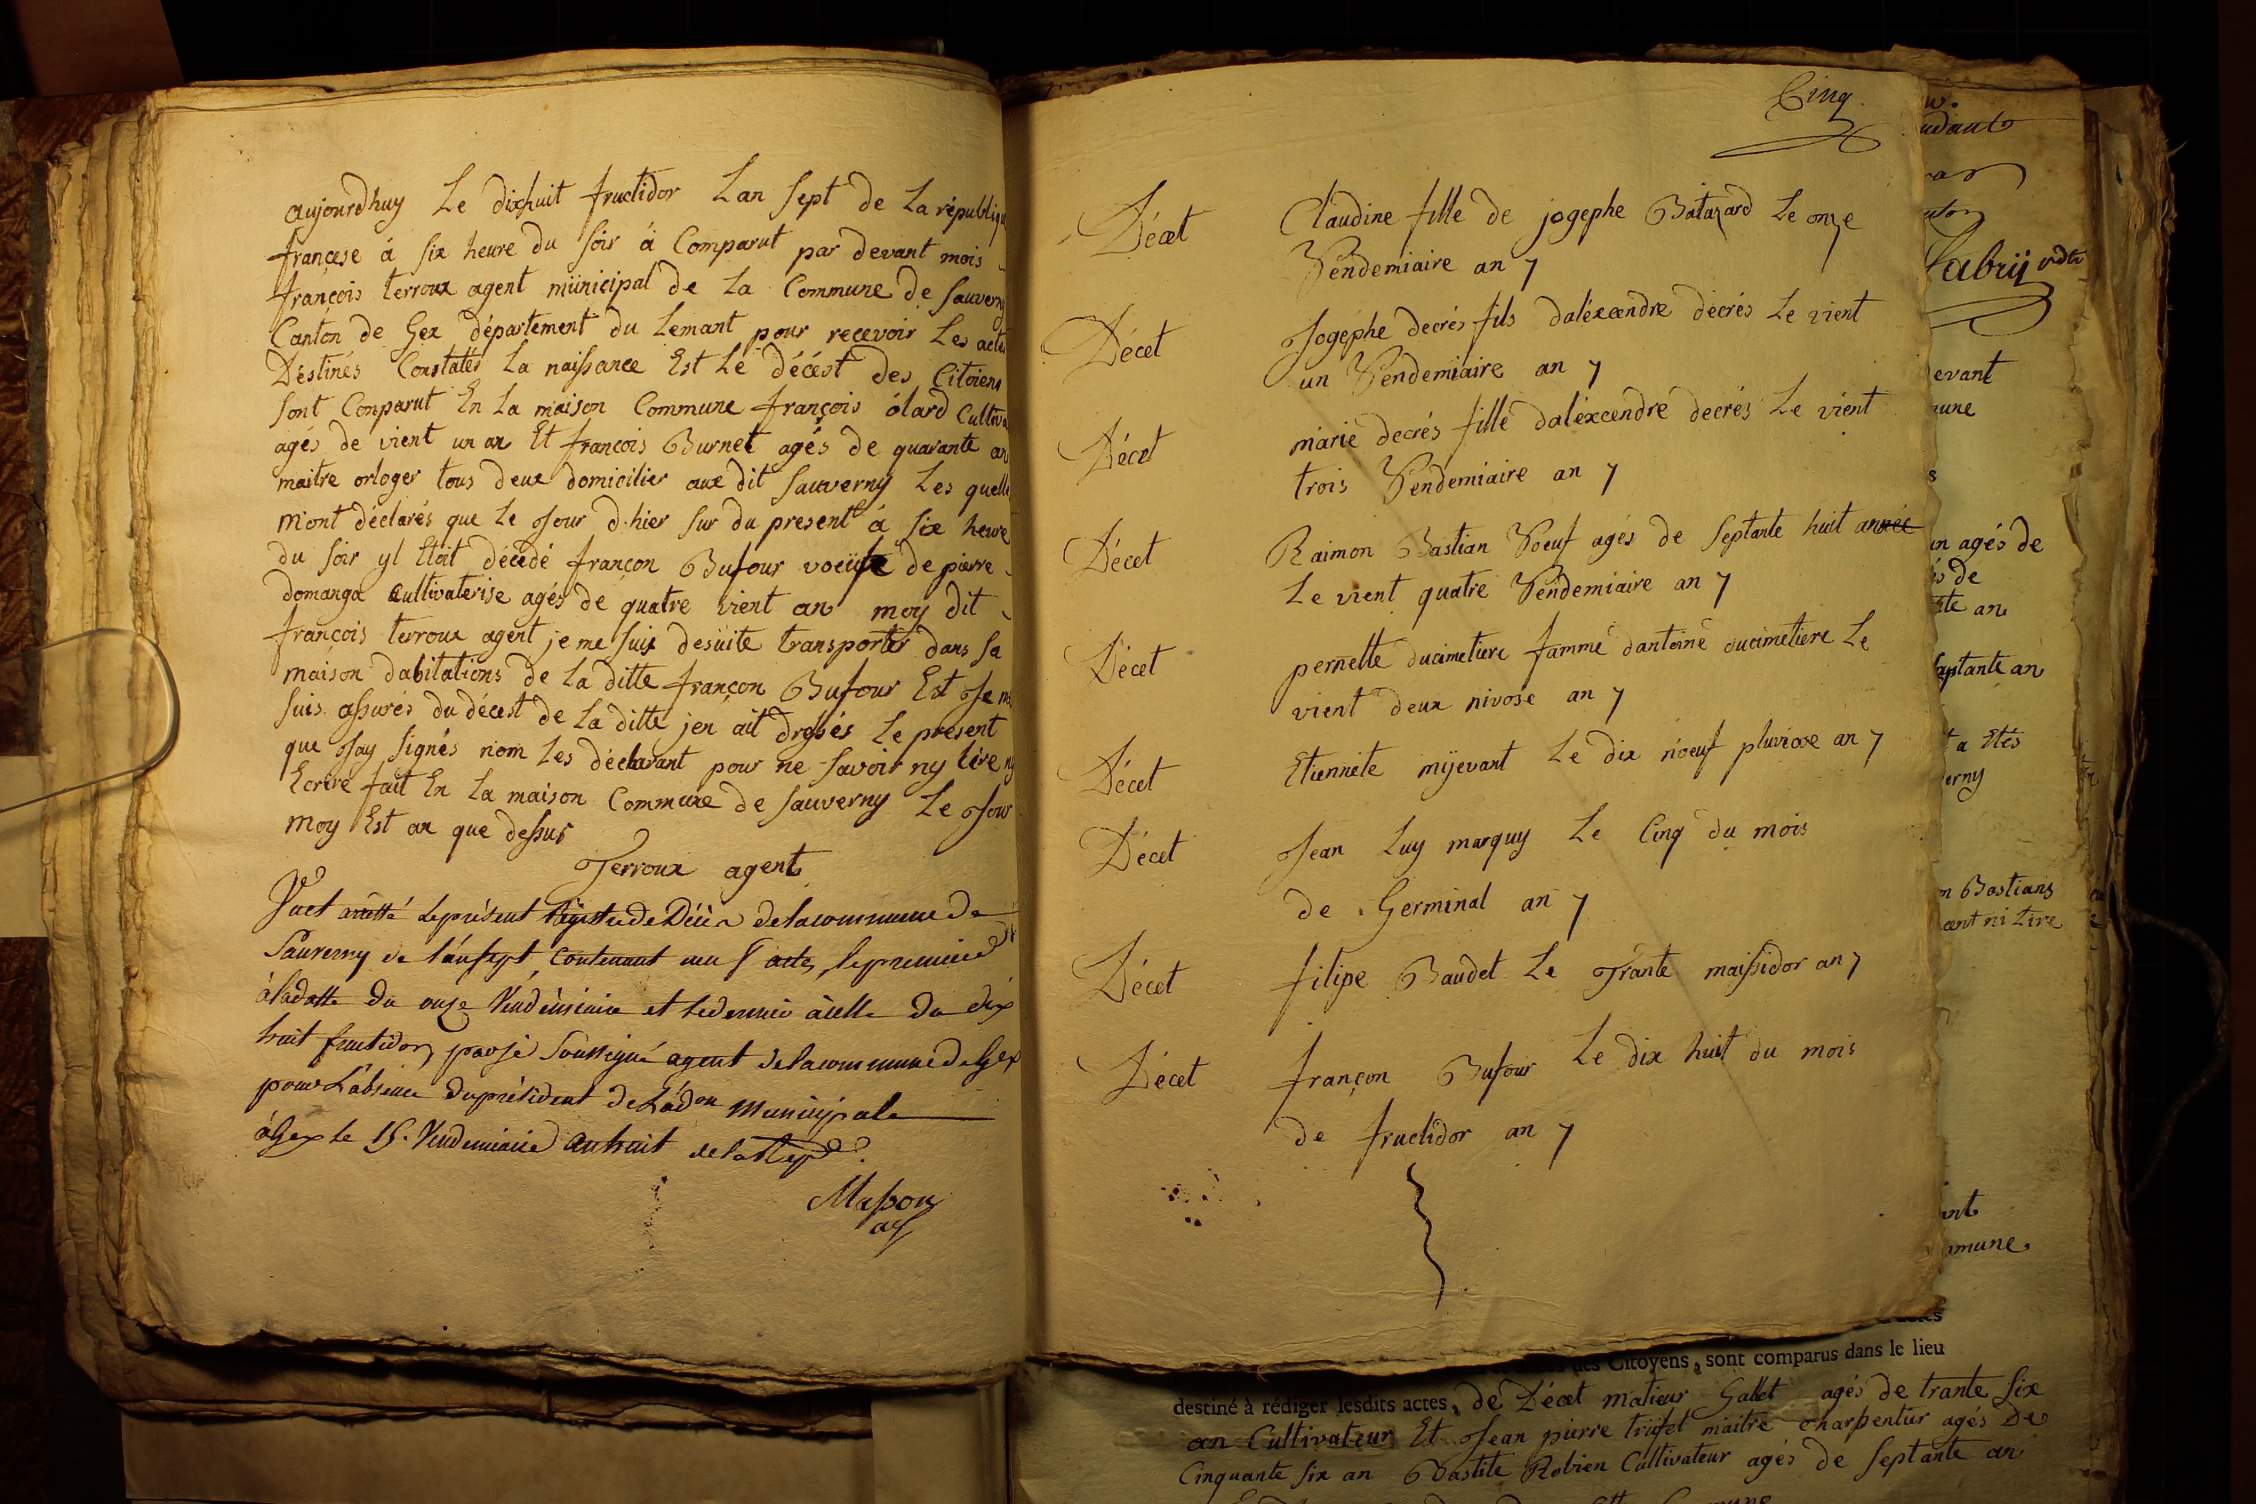 aujourdhuy Le dixhuit fructidor Lan Sept de La républiq
françese á six heure du soir á Comparut par devant mois
françois terroux agent münicipal de La Commune de Sauverny
Canton de Gex département du Lemant pour recevoir Les actes
Déstinés Constatés La naissance Est Le Décést des Citoiens
Sont Conparut En La maison Commune françois ólard Cultiva
agés de vient un an Et françois Burnet agés de quarante an
maitre orloger tous deux domicilier aux dit Sauverny Les quelle
m'ont déclarés que Le Jour d'hier sur du present á six heure
du soir yl Etoit décédé françon Bufour de pierre
domanga Cultivaterise agés de quatre vient an moy dit
françois terroux agent je me suis desuite transporter dans sa
maison dabitations de La ditte françon Bufour Est Je me
suis assurés du décest de La ditte jen ait dressés Le present
que Jay signés nom Les déclarant pour ne savoir ny Lire ny
Ecrire fait En La maison Commune de Sauverny Le Jour
moy Est an que dessus
Terroux agent
Vu et arretté Le présent Registre de Décès de la commune de
Sauverny de l'an sept contenant neuf actes, le premier
à la datte du onze Vendémiaire et le dernier à celle du dix
huit fructidor, par je soussigné agent de la commune de Gex
pour L'absence du président de L'adon municipale
à Gex le 15. Vendemiaire an huit de la Rep.
Masson
ag
Cinq
Décet Claudine fille de jogephe Batazard Le onze
Vendemiaire an 7
Décet Jogéphe decrés fils daléxcendre decrés Le vient
un Vendemiaire an 7
Décet marie decrés fille daléxcendre decrés Le vient
trois Vendemiaire an 7
Décet Raimon Bastian Voeuf agés de septante huit année
Le vient quatre Vendemiaire an 7
Décet pernette ducimetiere famme dantoine ducimetiere Le
vient deux nivose an 7
Décet Etiennete mijevant Le dix noeuf pluviose an 7
Décet Jean Luy marquy Le Cinq du mois
de Germinal an 7
Décet filipe Baudet Le Trante maissidor an 7
Décet françon Bufour Le dix huit du mois
de fructidor an 7
Fabry
evant
mune
an agés de
de
an
septante an
Etés
erny
Bastians
ni Lire
mmune.
des Citoyens, sont comparus dans le lieu
destiné à rédiger lesdits actes, de Décet matieur Gallet agés de trante six
an Cultivateur Et Jean pierre trufet maitre charpentier agés De
Cinquante six an Bastite Robien Cultivateur agés de septante an